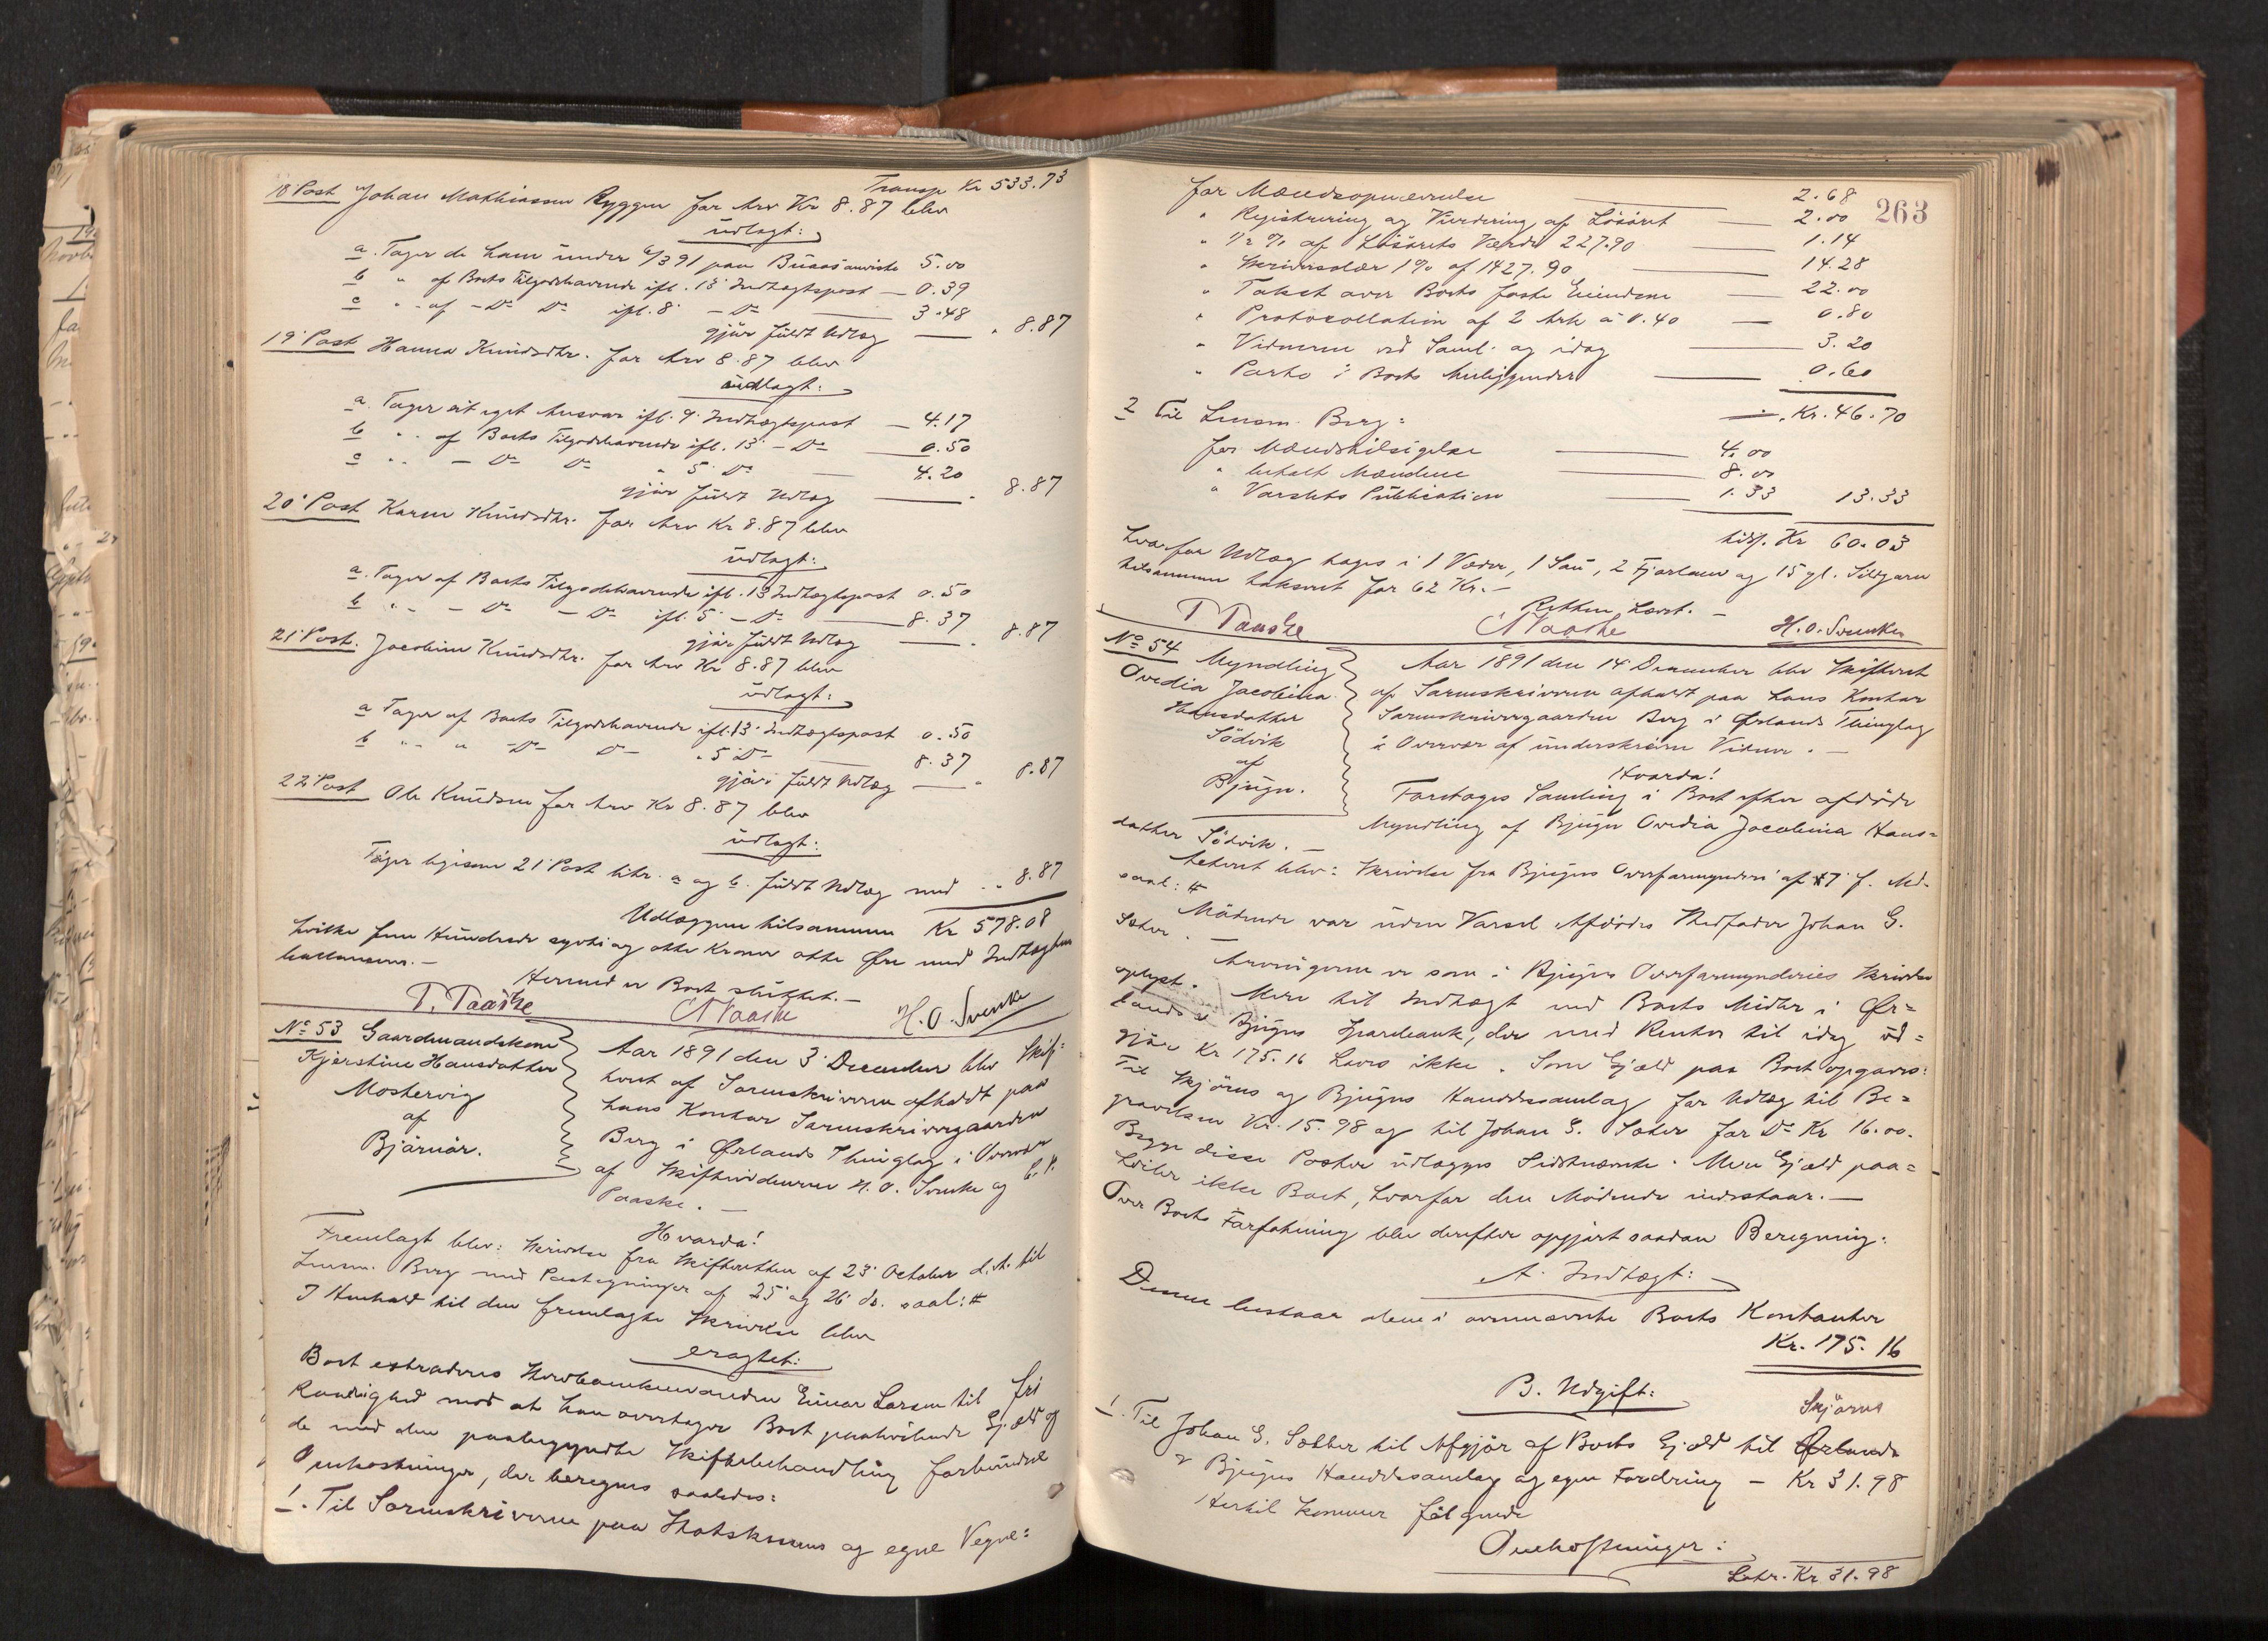 Transp Kr 533.73
18' Post Johan Mathiassen Ryggen for Arv Kr 8.87 blev
udlagt:
a. Tager de ham under 6/3 91 paa Buaas anviste 5.00
b " af Boets Tilgodehavende ifl. 13' Indtægtspost — 0.39
c " af - Do Do ifl. 8' - Do 3.48
gjør fuldt Udlæg — " 8.87
19' Post Hanna Knudsdtr. for Arv 8.87 blev
udlagt:
a. Tager sit eget Ansvar ifl. 9' Indtægtspost — 4.17
b " af Boets Tilgodehavende ifl. 13' - Do 0.50
c " - Do Do " 5' Do 4.20
gjør fuldt Udlæg — " 8.87
20' Post Karen Knudsdtr. for Arv Kr 8.87 blev
udlagt:
a. Tager af Boets Tilgodehavende ifl. 13 Indtægtspost 0.50
b " - Do - Do ifl. 5' - Do — 8.37
gjør fuldt Udlæg — " 8.87
21' Post. Jacobine Knudsdtr. for Arv Kr 8.87 blev
udlagt:
a Tager af Boets Tilgodehavende ifl. 13' Indtægtspost 0.50
b " " Do Do " 5' Do 8.37
gjør fuldt Udlæg — " 8.87
22' Post Ole Knudsen for Arv Kr 8.87 blev
udlagt:
Tager ligesom 21' Post litr. a og b. fuldt Udlæg med " 8.87
Udlæggene tilsammen Kr 578.08
hvilke fem Hundrede sytti og otte Kroner otte Øre med Indtægten
ballancere. —
Hermed er Boet sluttet. —
T. Paaske C Paaske H. O. Svenke
No 53 Gaardmandskone
Kjerstine Hansdatter
Moshervig
af
Bjørnør.
Aar 1891 den 3' December blev Skif-
teret af Sorenskriveren afholdt paa
hans Kontor Sorenskrivergaarden
Berg i Ørlands Thinglag i Overvær
af Skiftevidnerne H. O. Svenke og C. P.
Paaske. —
Hvorda!
Fremlagt blev: Skrivelse fra Skifteretten af 23' October d. A. til
Lensm. Berg med Paategninger af 25' og 26' ds. saal: #
I Henhold til den fremlagte Skrivelse blev
eragtet:
Boet extraderes Enkemanden Einar Larsen til fri
Raadighed mod at han overtager Boet paahvilende Gjæld og
de med den paabegyndte Skiftebehandling forbundne
Omkostninger, der beregnes saaledes:
1. Til Sorenskriveren paa Statskassens og egne Vegne:
263
for Mændsopnævnelse 2.68
" Registrering og Vurdering af Løsøret 2.00
" 1/2 % af Løsørets Værdi 227.90 1.14
" Skriversalær 1% af 1427.90 14.28
" Takst over Boets faste Eiendom 22.00
" Protocollation af 2 Ark à 0.40 0.80
" Vidnerne ved Saml. og idag 3.20
" Porto i Boets Anliggender 0.60
Kr. 46.70
2 Til Lensm. Berg:
for Mændstilsigelse 4.00
" betalt Mændene 8.00
" Varslets Publication 1.33 13.33
tils. Kr 60.03
hvorfor Udlæg tages i 1 Væder, 1 Sau, 2 Fjorlam og 15 gl. Sildgarn
tilsammen takseret for 62 Kr. —
Retten hævet. —
T Paaske C Paaske H. O. Svenke
No 54
Myndling
Ovedia Jacobina
Hansdatter
Södvik
af
Bjugn.
Aar 1891 den 14 December blev Skifteret
af Sorenskriveren afholdt paa hans Kontor
Sorenskrivergaarden Berg i Ørlands Thinglag
i Overvær af underskrevne Vidner. —
Hvorda!
Foretages Samling i Boet efter afdøde
Myndling af Bjugn Ovedia Jacobina Hans=
datter Södvik. —
Acteret blev: Skrivelse fra Bjugns Overformynderi af 7' f. Md.
saal: #
Mødende var uden Varsel Afdødes Stedfader Johan G.
Sæter. —
Arvingerne er som i Bjugns Overformynderies Skrivelse
oplyst. Mere til Indtægt end Boets Midler i Ør=
lands & Bjugns Sparebank, der med Renter til idag ud=
gjør Kr 175.16 haves ikke. Som Gjæld paa Boet opgaves:
Til Skjørns og Bjugns Handelssamlag for Udlæg til Be=
gravelsen Kr. 15.98 og til Johan G. Sæter for Do Kr 16.00.
Begge disse Poster udlægges Sidstnævnte. Mere Gjæld paa=
hviler ikke Boet, hvorfor den Mødende indestaar. —
Over Boets Forfatning blev derefter opgjort saadan Beregning:
A. Indtægt:
Denne bestaar alene i ovennævnte Boets Kontanter
Kr. 175.16
B. Udgift:
1. Til Johan G. Sætter til Afgjør af Boets Gjæld til Ørlands Skjørns
& Bjugns Handelssamlag og egen Fordring — Kr 31.98
Hertil kommer følgende
Omkostninger:
Latr. Kr 31.98